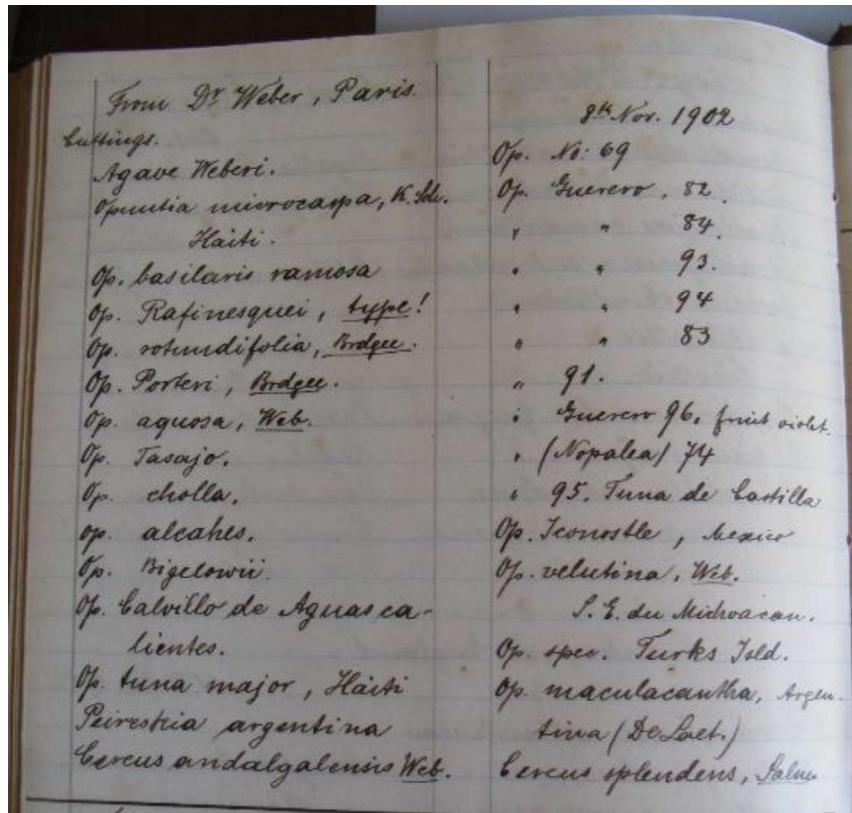 From Dr Weber, Paris.
Cuttings.
Agave Weberi.
Opuntia microcarpa, K. Sch.
Haiti.
Op. basilaris ramosa
Op. Rafinesquei, type!
Op. rotundifolia, Brdgee.
Op. Porteri, Brdgee.
Op. aquosa, Web.
Op. Tasajo.
Op. cholla.
Op. alcahes.
Op. Bigelowii.
Op. Calvillo de Aguasca-
lientes.
Op. tuna major, Haiti
Peireskia argentina
Cereus andalgalensis Web.
8th Nov. 1902
Op. No: 69
Op. Guerero, 82.
" " 84.
" " 93.
" " 94
" " 83
" 91.
" Guerero 96, fruit violet.
" (Nopalea) 74
" 95. Tuna de Castilla
Op. Iconostle, Mexico
Op. velutina, Web.
S. E. du Michoacan.
Op. spec. Turks Isld.
Op. maculacantha, Argen-
tina (De Laet.)
Cereus splendens, Salm